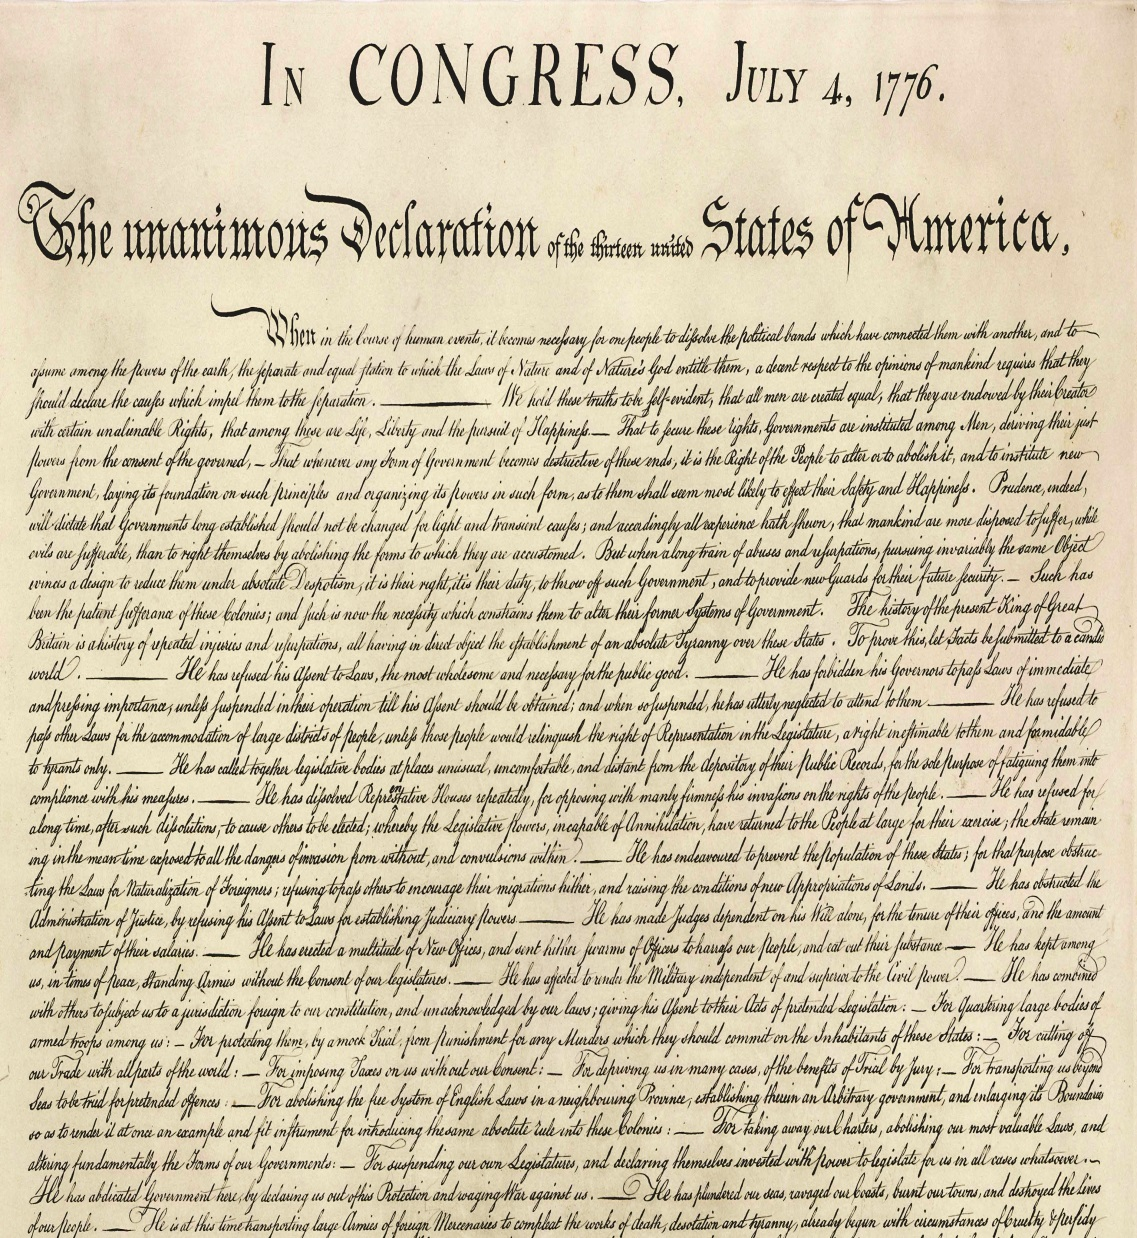 In CONGRESS, July 4, 1776.
The unanimous Declaration of the thirteen united States of America,
When in the Course of human events, it becomes necessary for one people to dissolve the political bands which have connected them with another, and to
assume among the powers of the earth, the separate and equal station to which the Laws of Nature and of Nature's God entitle them, a decent respect to the opinions of mankind requires that they
should declare the causes which impel them to the separation. ——— We hold these truths to be self-evident, that all men are created equal, that they are endowed by their Creator
with certain unalienable Rights, that among these are Life, Liberty and the pursuit of Happiness.— That to secure these rights, Governments are instituted among Men, deriving their just
powers from the consent of the governed, — That whenever any Form of Government becomes destructive of these ends, it is the Right of the People to alter or to abolish it, and to institute new
Government, laying its foundation on such principles and organizing its powers in such form, as to them shall seem most likely to effect their Safety and Happiness. Prudence, indeed,
will dictate that Governments long established should not be changed for light and transient causes; and accordingly all experience hath shewn, that mankind are more disposed to suffer, while
evils are sufferable, than to right themselves by abolishing the forms to which they are accustomed. But when a long train of abuses and usurpations, pursuing invariably the same Object
evinces a design to reduce them under absolute Despotism, it is their right, it is their duty, to throw off such Government, and to provide new Guards for their future security. — Such has
been the patient sufferance of these Colonies; and such is now the necessity which constrains them to alter their former Systems of Government. The history of the present King of Great
Britain is a history of repeated injuries and usurpations, all having in direct object the establishment of an absolute Tyranny over these States. To prove this, let Facts be submitted to a candid
world. ——— He has refused his Assent to Laws, the most wholesome and necessary for the public good. ——— He has forbidden his Governors to pass Laws of immediate
and pressing importance, unless suspended in their operation till his Assent should be obtained; and when so suspended, he has utterly neglected to attend to them. ——— He has refused to
pass other Laws for the accommodation of large districts of people, unless those people would relinquish the right of Representation in the Legislature, a right inestimable to them and formidable
to tyrants only. ——— He has called together legislative bodies at places unusual, uncomfortable, and distant from the depository of their Public Records, for the sole purpose of fatiguing them into
compliance with his measures. ——— He has dissolved Representative Houses repeatedly, for opposing with manly firmness his invasions on the rights of the people. ——— He has refused for
a long time, after such dissolutions, to cause others to be elected; whereby the Legislative powers, incapable of Annihilation, have returned to the People at large for their exercise; the State remain
ing in the mean time exposed to all the dangers of invasion from without, and convulsions within. ——— He has endeavoured to prevent the population of these States; for that purpose obstruc-
ting the Laws for Naturalization of Foreigners; refusing to pass others to encourage their migrations hither, and raising the conditions of new Appropriations of Lands. ——— He has obstructed the
Administration of Justice, by refusing his Assent to Laws for establishing Judiciary powers. ——— He has made Judges dependent on his Will alone, for the tenure of their offices, and the amount
and payment of their salaries. ——— He has erected a multitude of New Offices, and sent hither swarms of Officers to harrass our people, and eat out their substance. ——— He has kept among
us, in times of peace, Standing Armies without the Consent of our legislatures. ——— He has affected to render the Military independent of and superior to the Civil power. ——— He has combined
with others to subject us to a jurisdiction foreign to our constitution, and unacknowledged by our laws; giving his Assent to their Acts of pretended Legislation: — For Quartering large bodies of
armed troops among us: — For protecting them, by a mock Trial, from punishment for any Murders which they should commit on the Inhabitants of these States: — For cutting off
our Trade with all parts of the world: — For imposing Taxes on us without our Consent: — For depriving us in many cases, of the benefits of Trial by Jury: — For transporting us beyond
Seas to be tried for pretended offences: — For abolishing the free System of English Laws in a neighbouring Province, establishing therein an Arbitrary government, and enlarging its Boundaries
so as to render it at once an example and fit instrument for introducing the same absolute rule into these Colonies: — For taking away our Charters, abolishing our most valuable Laws, and
altering fundamentally the Forms of our Governments: — For suspending our own Legislatures, and declaring themselves invested with power to legislate for us in all cases whatsoever. —
He has abdicated Government here, by declaring us out of his Protection and waging War against us. ——— He has plundered our seas, ravaged our Coasts, burnt our towns, and destroyed the Lives
of our people. ——— He is at this time transporting large Armies of foreign Mercenaries to compleat the works of death, desolation and tyranny, already begun with circumstances of Cruelty & perfidy